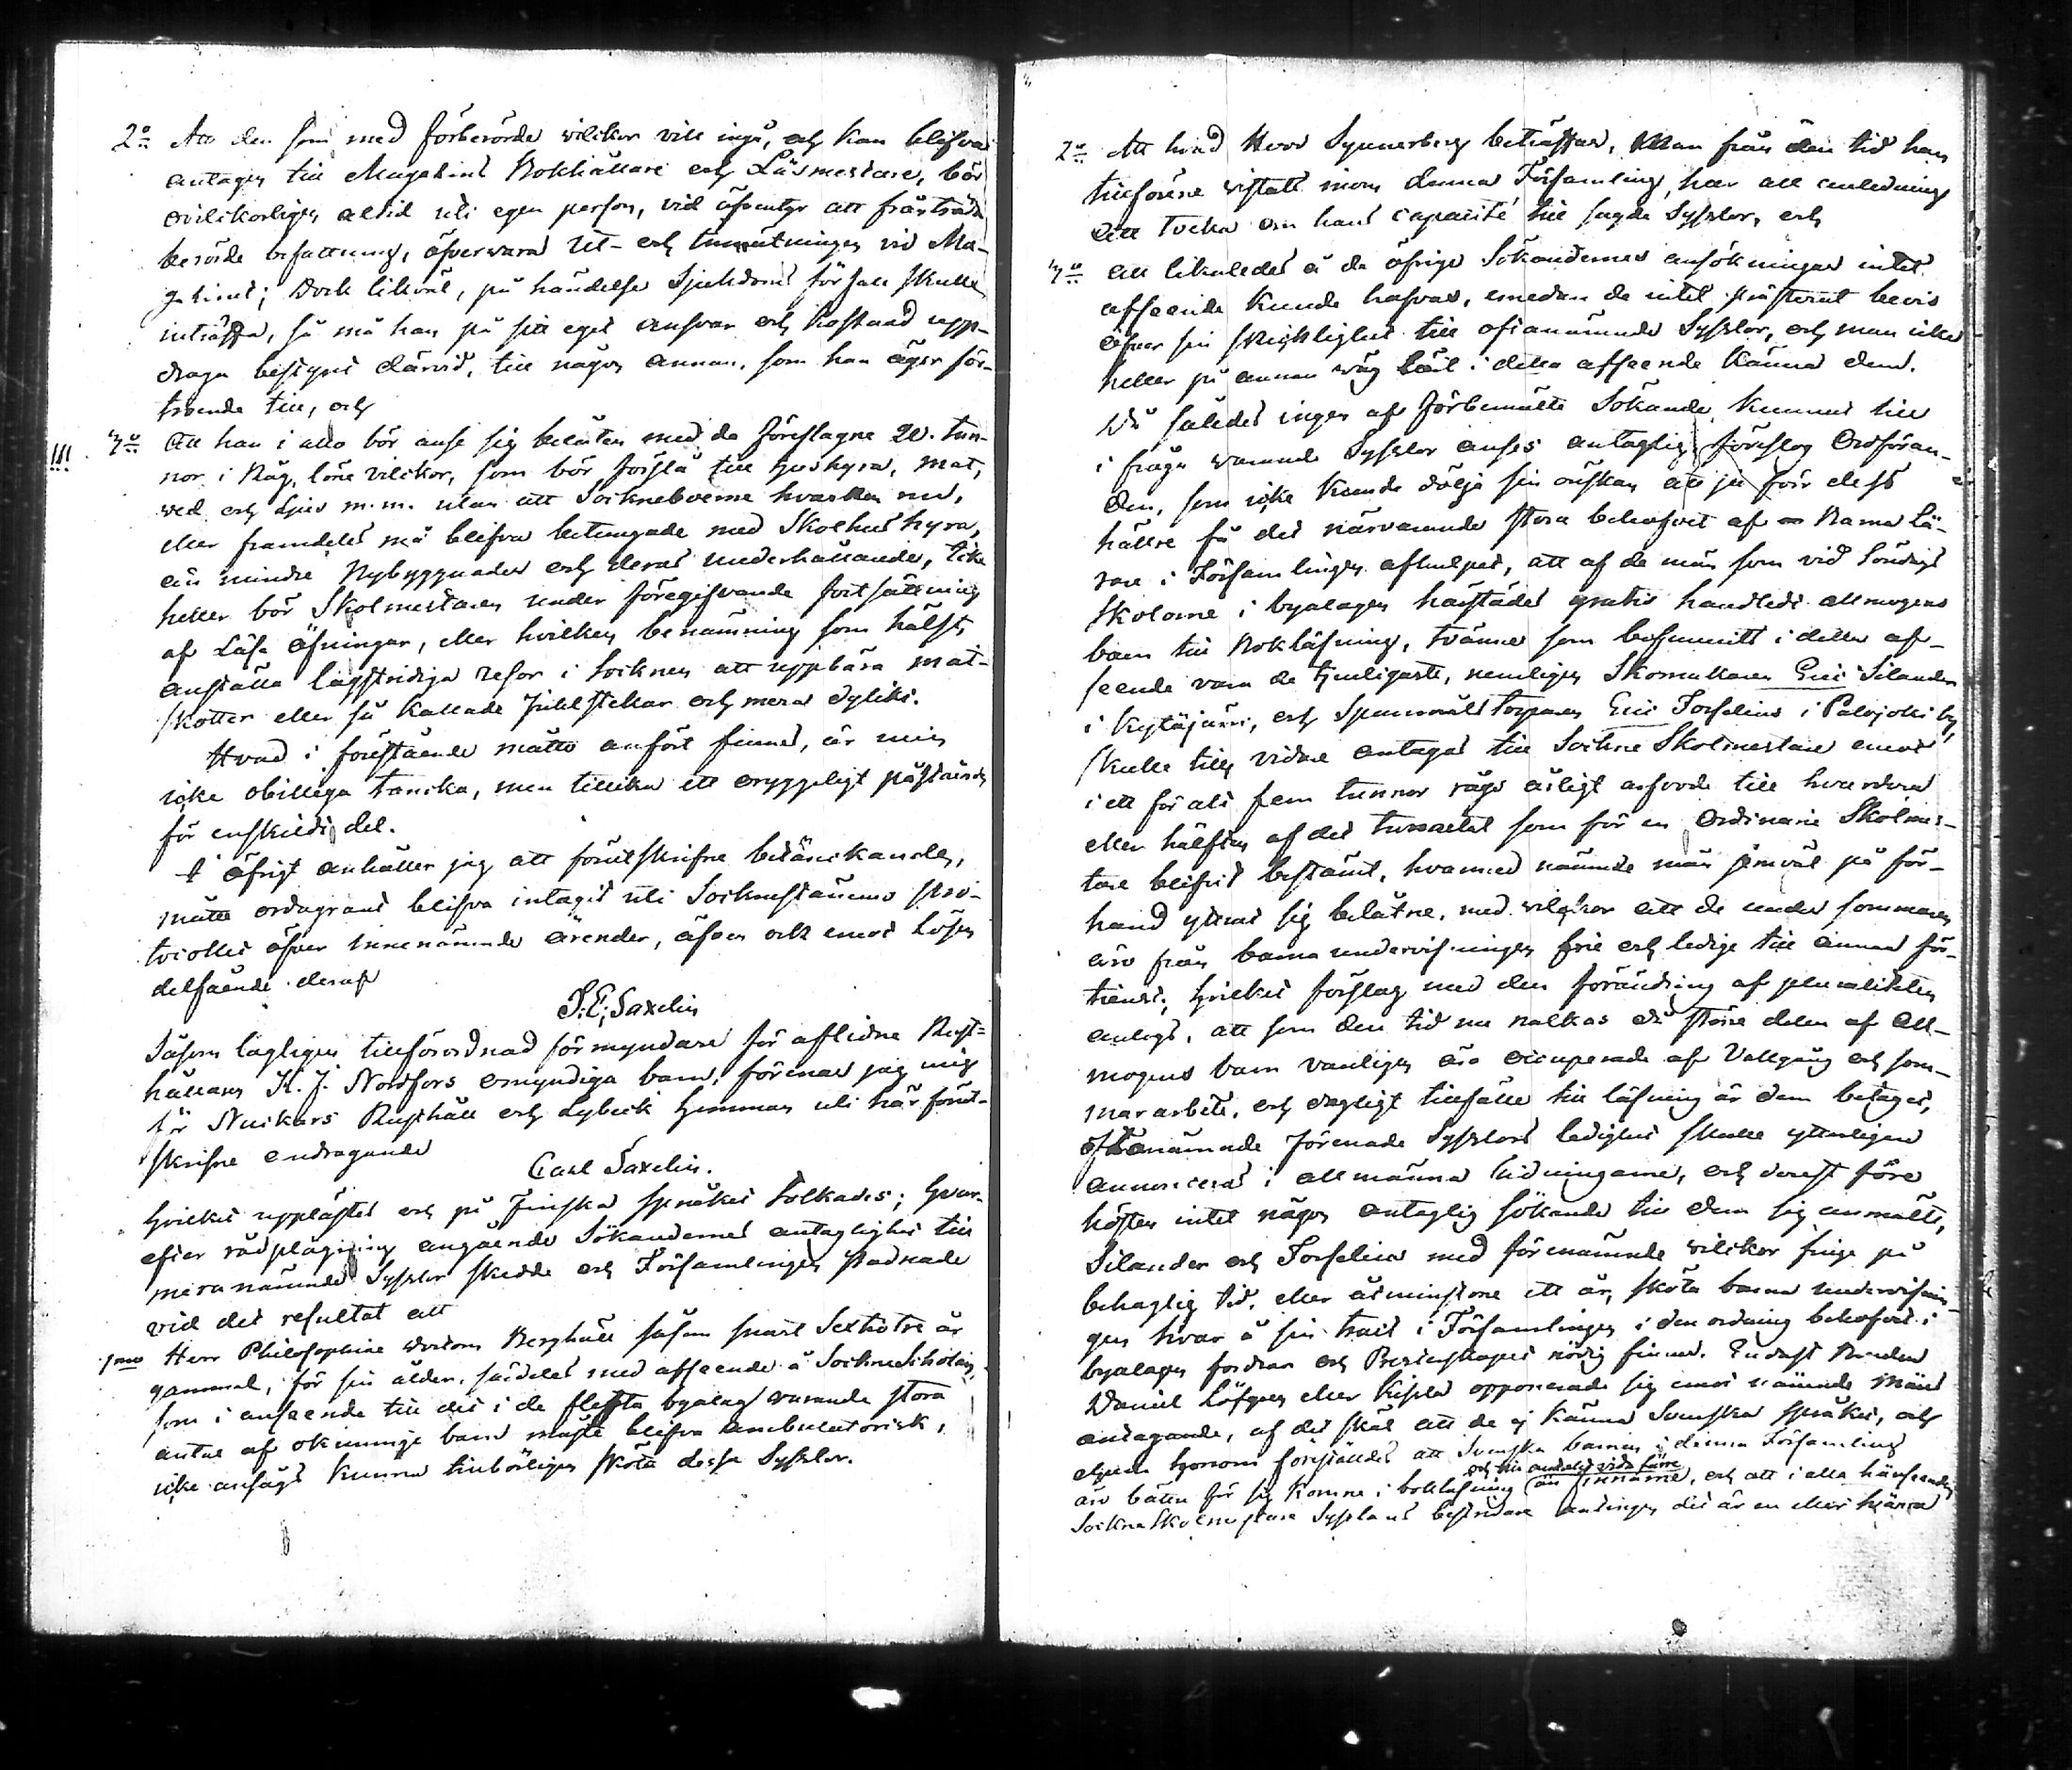 2o Att den som med förberörde vilikor vill ingå, och kan blifva
antagen till Magasins Bokhållare och Läsmestare, bör
ovilkorligen altid uti egen person, vid äfventyr att frånträda
berörde befattning, öfvervara Ut- och Inmätningen vid Ma-
gasinet; Dock likväl, på händelse Sjukdoms förfall skulle
inträffa, så må han på sitt eget ansvar och kostnad upp-
draga bestyret därvid, till någon annan, som han äger för-
troende till, och
!!! 3o Att han i allo bör anse sig belåten med de föreslagne 20. tun-
nor i Råg, löne vilikor, som bör förslå till hushyra, mat,
ved och ljus m.m. utan att Sockneboerne hvarken nu,
eller framdeles må blifva betungade med Skolhus hyra,
än mindre Nybyggnader och deras underhållande, icke
heller bör Skolmestaren under föregifvande fortsättning
af Läse öfningar, eller hvilken benämning som hälst,
anställa lagstridiga resor i Socknen att uppbära mat-
skotter eller så kallade Julstekar och mera dylikt.
Hvad i förestående mätto anfört finnes, är min
icke obilliga tancka, men tillika ett oryggeligt påstående
för enskildt del.
I öfrigt anhåller jag att förutskrifne betänckande,
måtte ordagrant blifva intagit uti Sockenstämmo pro-
tocollet öfver innenämnde ärender, äfven ock emot Lösen
delfående deraf
S: E; Saxelin
Såsom lagligen tillförordnad förmyndare för aflidne Rust-
hållaren K. J. Nordfors omyndiga barn, förenar jag mig
för Nuckars Rusthåll och Lybeck hemman uti här förut-
skrifne andragande
Carl Saxelin.
Hvilket upplästes och på Finska språket tolkades; hvar-
efter rådplägning angående Sökandernes antaglighet till
mera nämnde Sysslor skedde och Församlingen stadnade
vid det resultat att
1mo Herr Philosophiæ Doctorn Berghäll såsom snart Sextiotre år
gammal, för sin ålder, särdeles med afseende å Sockne Scholan,
som i anseende till det i de flesta byalag varande stora
antal af okunnige barn måste blifva ambulatorisk,
icke ansågs kunna tillbörligen sköta dessa Sysslor.
2o Att hvad Herr Synnerberg beträffar, Man från den tid han
tillförene vistats inom denna Församling, har all anledning
att tvека om hans capacité till sagde Sysslor, och
3o Att likaledes å de öfrige Sökandernes ansökningar intet
afseende kunde hafvas, emedan de intet prästerat bevis
öfver sin skicklighet till oftanämnde Sysslor, och man icke
heller på annan väg i detta afseende känna dem.
Då således ingen af förbemälte Sökande kunnat till
i fråga varande Sysslor anses antaglig, föreslog Ordföran-
den, som icke kunde dölja sin önskan att ju förr dess
hällre få det närvarande stora behofvet af Barna Lä-
rare i Församlingen afhulpet, att af de män som vid Söndags
Skolorne i byalagen härstädes gratis handledt allmogens
barn till Bokläsning, tvänne som befunnits i detta af-
seende vara de tjenligaste, nemligen Skomakaren Eric Silander
i Kytäjärvi, och Spannmåls torparen Eric Forselius i Palojoki by,
skulle tills vidare antagas till Sockne Skolmestare emot
i ett för alt fem tunnor råg årligt arfvode till hvardera
eller hälften af det tunnetal som för en Ordinarie Skolmes-
tare blifvit bestämt, hvarmed nämnde män jemväl på för-
hand yttrat sig belåtne, med vilckor att de under sommaren
äro från barna undervisningen frie och ledige till annan för-
tienst; hvilket förslag med den förändring af pluraliteten
antogs, att som den tid nu nalkas då större delen af All-
mogens barn vanligen äro occuperade af Vallgång och som-
mararbete, och dageligt tillfälle till läsning är dem betaget,
oftanämnde förenade Sysslors ledighet skulle ytterligare
annonceras i allmänna tidningarne, och derest före
hösten intet någon antaglig sökande till dem sig anmälte,
Silander och Forselius med förenämnde vilckor finge på
behaglig tid, eller åtminstone ett år, sköta barna undervisnin-
gen hvar å sin trakt i Församlingen i den ordning behofvet i
byalagen fordrar och Presterskapet nödig finner. Endast Bonden
Daniel Löfgren eller Kissla opponerade sig emot nämnde Mäns
antagande, af det skäl att de ej känna Svenska språket, och
ehuru honom föreställdes att Svenska barnen i denna Församling
äro bättre för sig komne i bokläsning och till antalet vida färre än finnarne, och att i alla hänseenden
Sockne Skolmestare Sysslans bestridare antingen det är en eller flere